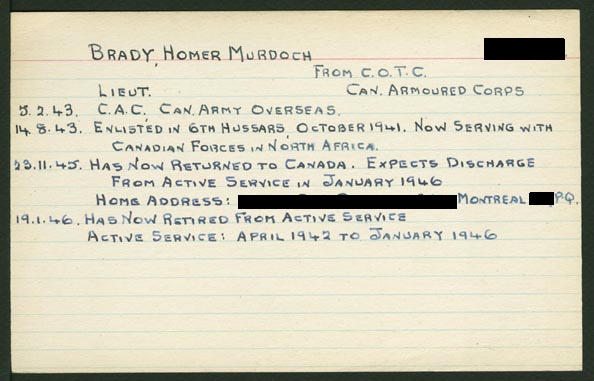 BRADY, HOMER MURDOCH
FROM C.O.T.C.
LIEUT. CAN. ARMOURED CORPS
5.2.43. C.A.C. CAN. ARMY OVERSEAS.
14.8.43. ENLISTED IN 6TH HUSSARS, OCTOBER 1941. NOW SERVING WITH
CANADIAN FORCES IN NORTH AFRICA.
23.11.45. HAS NOW RETURNED TO CANADA. EXPECTS DISCHARGE
FROM ACTIVE SERVICE IN JANUARY 1946
HOME ADDRESS: MONTREAL P.Q.
19.1.46. HAS NOW RETIRED FROM ACTIVE SERVICE
ACTIVE SERVICE: APRIL 1942 TO JANUARY 1946